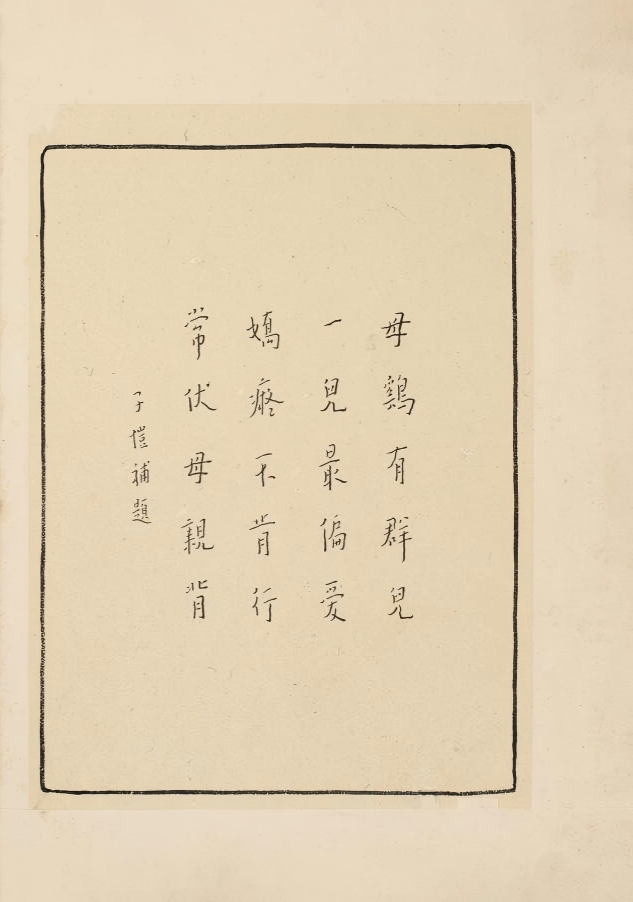 母鷄有群兒
一兒最偏愛
嬌癡不肯行
常伏母親背
子愷補題